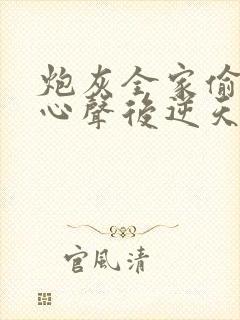 炮灰全家偷
心聲後逆天
官風清